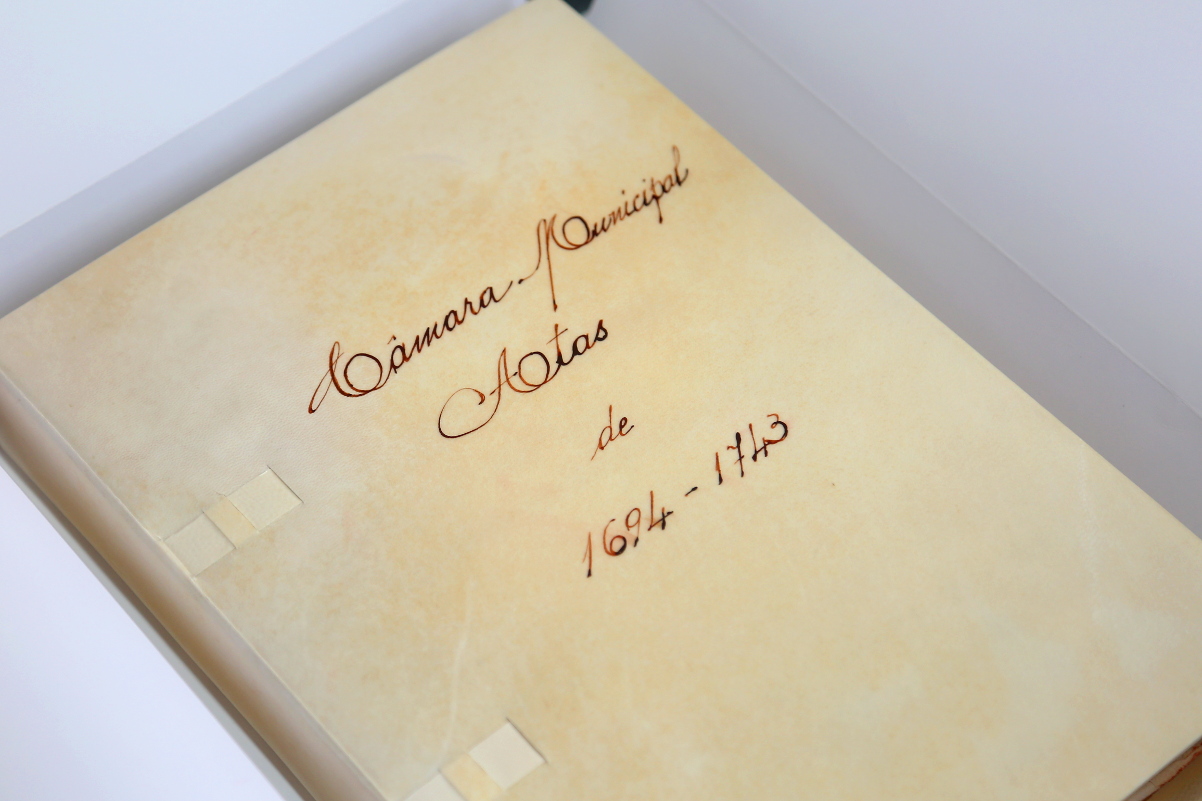 Câmara Municipal
Atas
de
1694 - 1743